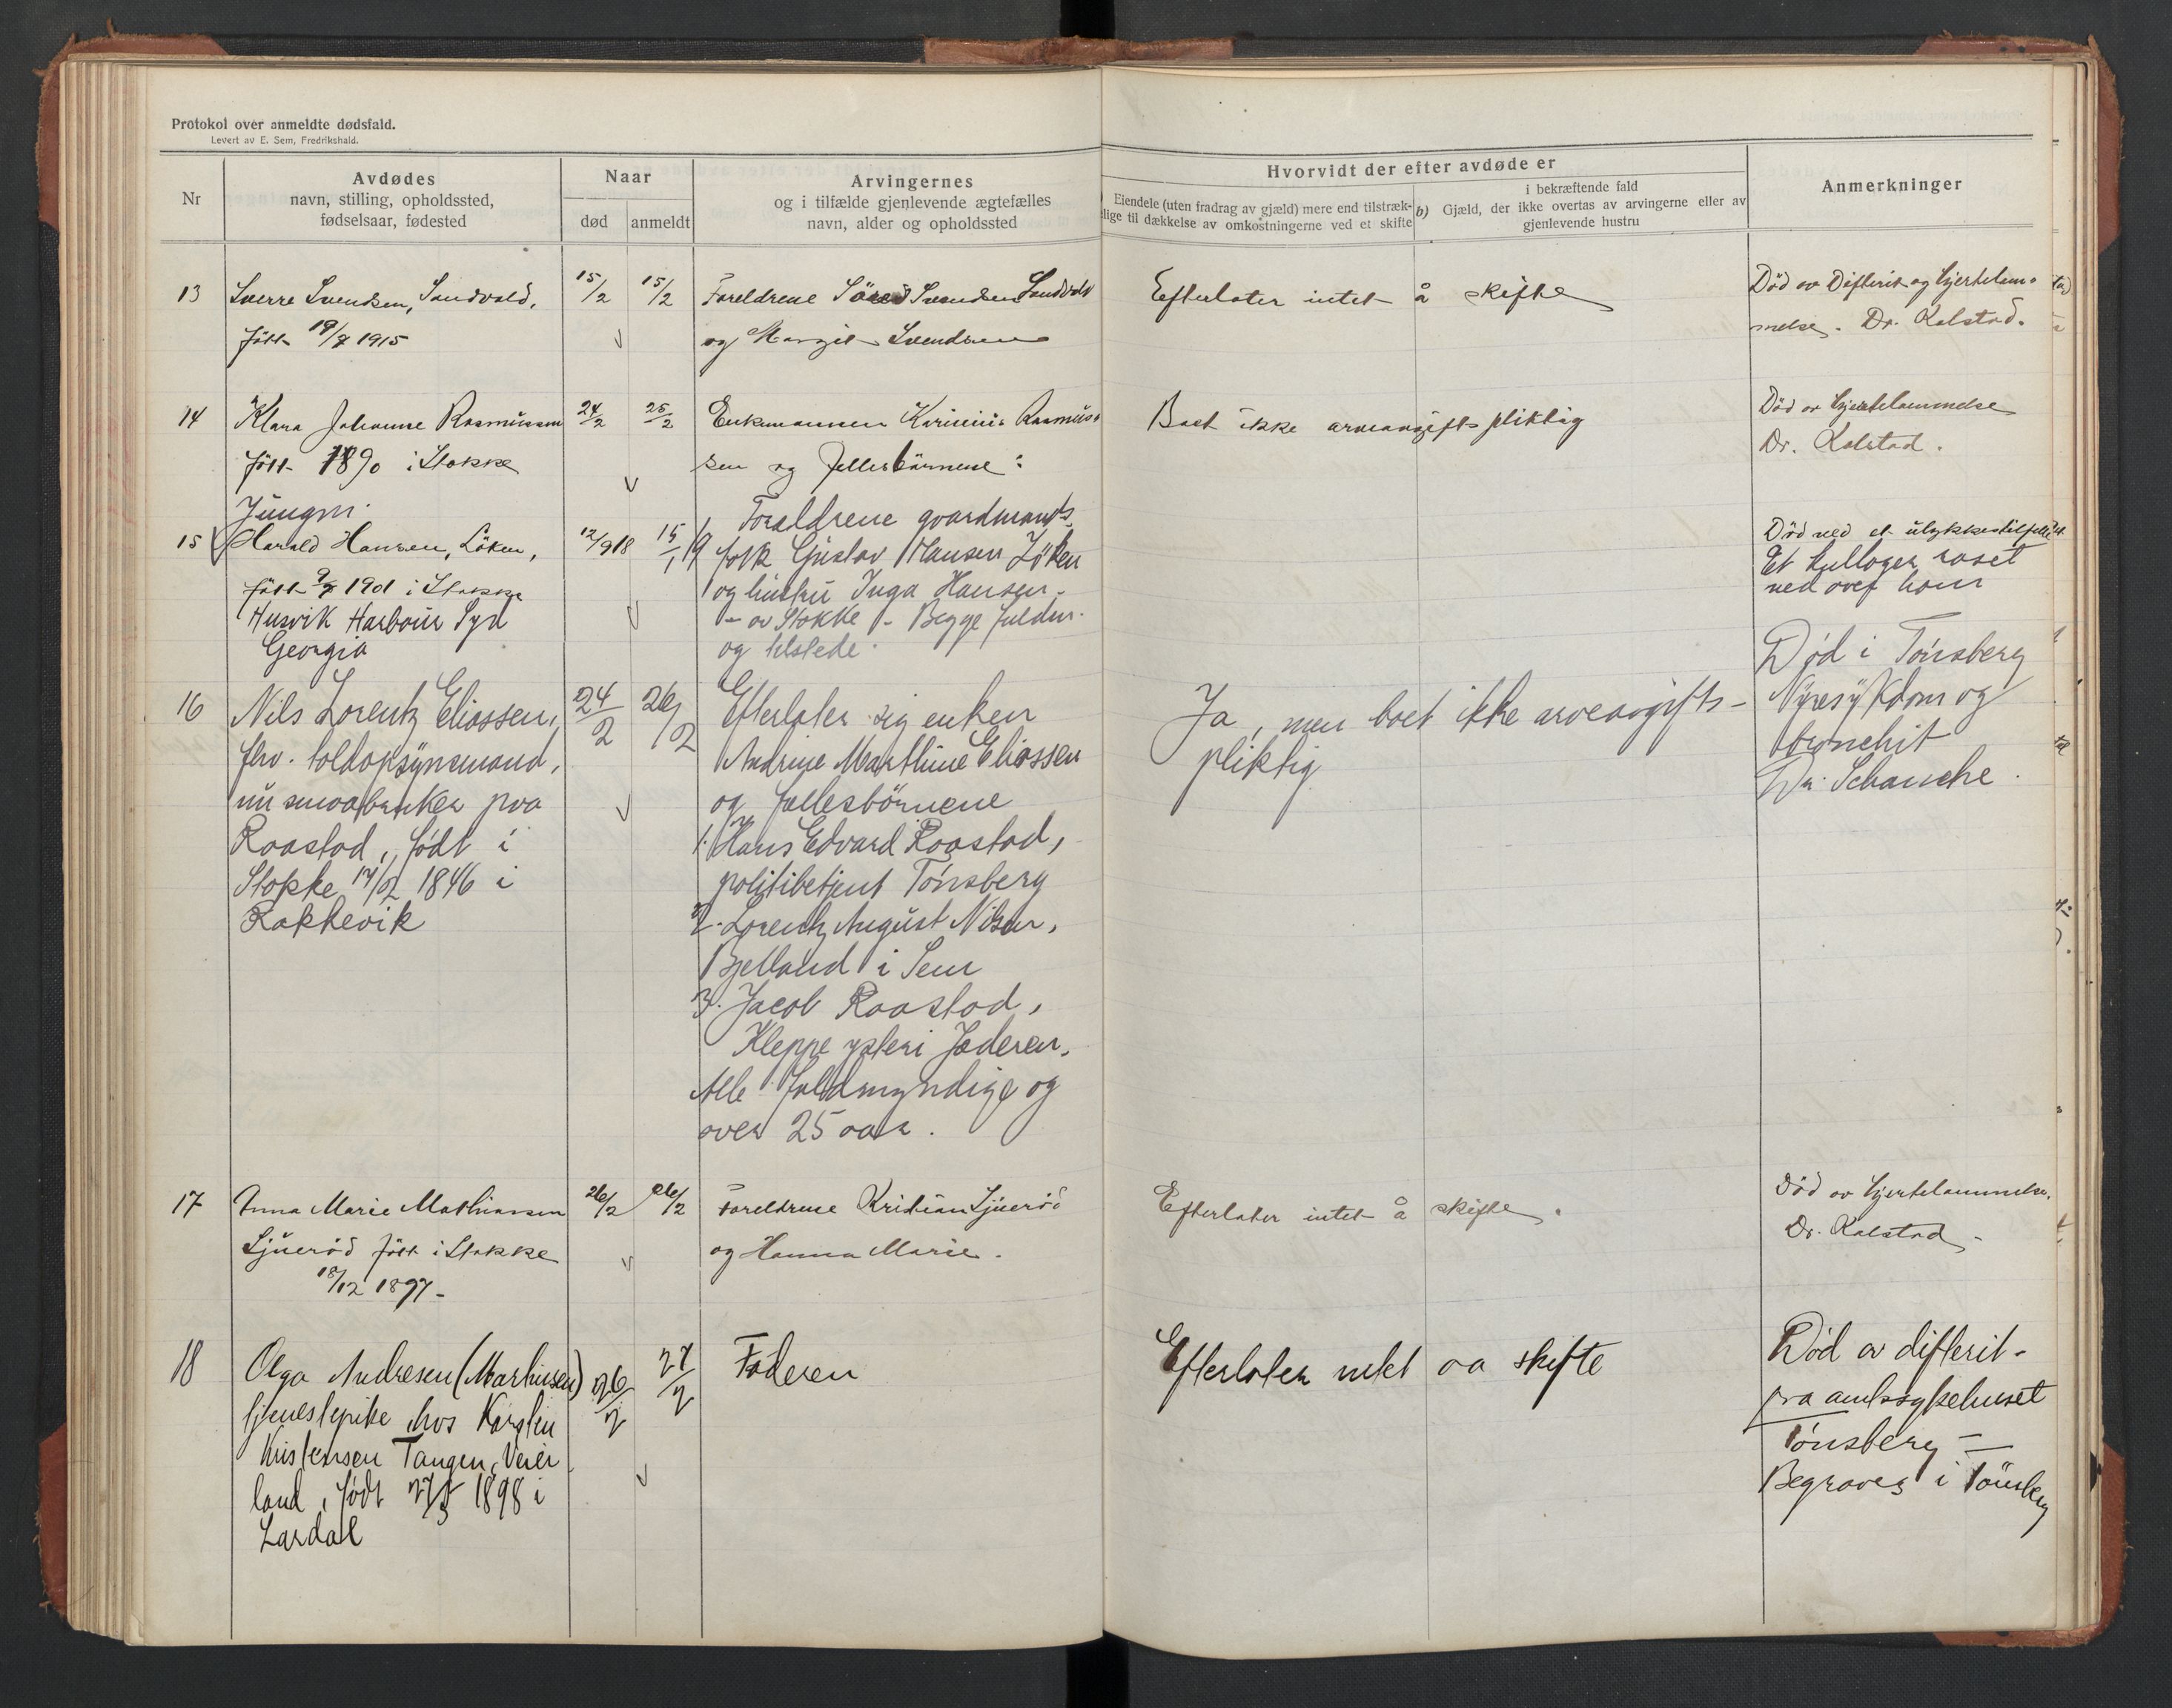 Protokol over anmeldte dødsfald.
Levert av E. Sem, Fredrikshald.
Nr
Avdødes
navn, stilling, opholdssted,
fødselsaar, fødested
Naar
død
anmeldt
Arvingernes
og i tilfælde gjenlevende ægtefælles
navn, alder og opholdssted
Hvorvidt der efter avdøde er
Eiendele (uten fradrag av gjæld) mere end tilstræk-
lige til dækkelse av omkostningerne ved et skifte
i bekræftende fald
b) Gjæld, der ikke overtas av arvingerne eller av
gjenlevende hustru
Anmerkninger
13
Sverre Svendsen, Sandvold,
født 19/7 1915
15/2
15/2
Foreldrene Svendsen Sandvold
og Margit Svendsen
Efterlater intet å skifte
Død av Difterit og hjertelam-
melse. Dr. Kalstad.
14
Klara Johanne Rasmussen
født 1890 i Stokke
24/2
25/2
Enkemannen Rasmus-
sen og fellesbärnene:
Boet ikke arveavgiftspliktig
Død av hjertelammelse
Dr. Kalstad.
15
Jungm.
Harald Hansen, Löken,
født 9/7 1901 i Stokke
Husvik Harbour Syd
Georgia
12/9 18
15/1 19
Foraldrene gaardmands-
folk Gustav Hansen Löken
og hustru Inga Hansen
- av Stokke - Begge fuldm.
og tilstede.
Död ved et ulykkestilfelle
Et kullager raset
ned over ham
16
Nils Lorentz Eliassen,
fhv. toldopsynsmand,
nu smaabruker paa
Raastad, født i
Stokke 14/2 1846 i
Rakkevik
24/2
26/2
Efterlater sig enken
Andrine Marthine Eliassen
og fællesbörnene
1. Hans Edvard Raastad,
politibetjent Tönsberg
2. Lorentz August Nilsen,
Bjelland i Sem
3. Jacob Raastad,
Kleppe ysteri Jæderen.
Alle fuldmyndige og
over 25 aar.
Ja, men boet ikke arveavgifts-
pliktig
Død i Tönsberg
Nyresykdom og
bronchit
Dr. Schanche.
17
Anna Marie Mathiassen
Ljuerød født i Stokke
18/12 1897.
26/2
26/2
Foreldrene Kristian Ljuerød
og Hanna Marie.
Efterlater intet å skifte.
Død av hjertelammelse.
Dr. Kalstad.
18
Olga Andresen (Marhinsen)
tjenestepike hos Karstin
Kristensen Tangen, Veier
land, født 27/5 1898 i
Lardal
26/2
27/2
Faderen
Efterlater intet aa skifte
Død av difterit -
paa amtssykehuset
Tönsberg -
Begraves i Tönsberg